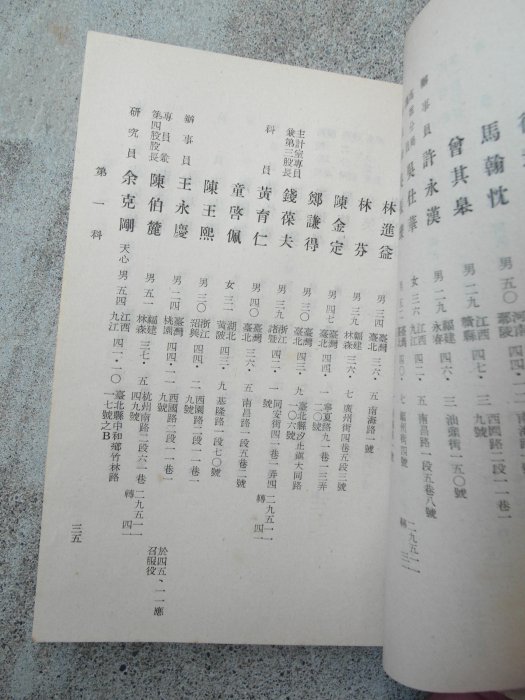 馬翰忱 男 五〇 河南鄢陵
曾其皋 男 二九 江西贛縣 四七・三 西園路二段一一巷一九號
辦事員 許永漢 男 二九 福建永春 四三・三 汕頭街一五〇號
吳仕華 女 三六 江西 四二・五 南昌路一段五巷八號
林進益 男 三四 臺灣臺北 三六・五 南海路一號
林芬 男 三九 福建林森 三六・七 廣州街四巷五段二號
陳金定 男 四七 臺灣臺北 四四・一一 寧夏路九一巷三弄一二〇號
鄭謙得 男 三〇 臺灣臺北 四三・九 臺北縣汐止鎮大同路一〇六號
主計室專員兼第三股長 錢葆夫 男 三九 浙江諸暨 四二・一 同安街四一巷一弄四號 二九五一一轉四一
科員 黃育仁 男 四〇 臺灣臺北 三六・五 南昌路一段五巷二號
童啓佩 女 三二 湖北黃陂 四三・九 基隆路一段一七〇號
陳王熙 男 三〇 浙江紹興 四四・二 西園路二段一一巷一九號
辦事員 王永慶 男 二四 臺灣桃園 四四・二 西園路二段一一巷一九號 於四五・一一應召服役
專員兼第四股股長 陳伯麓 男 五一 福建林森 三七・五 杭州南路二段六一巷四九號 二九五一一轉四一
研究員 余克剛 天心 男 五四 江西九江 四二・一〇 臺北縣中和鄉竹林路一七號之B
第一科
三五